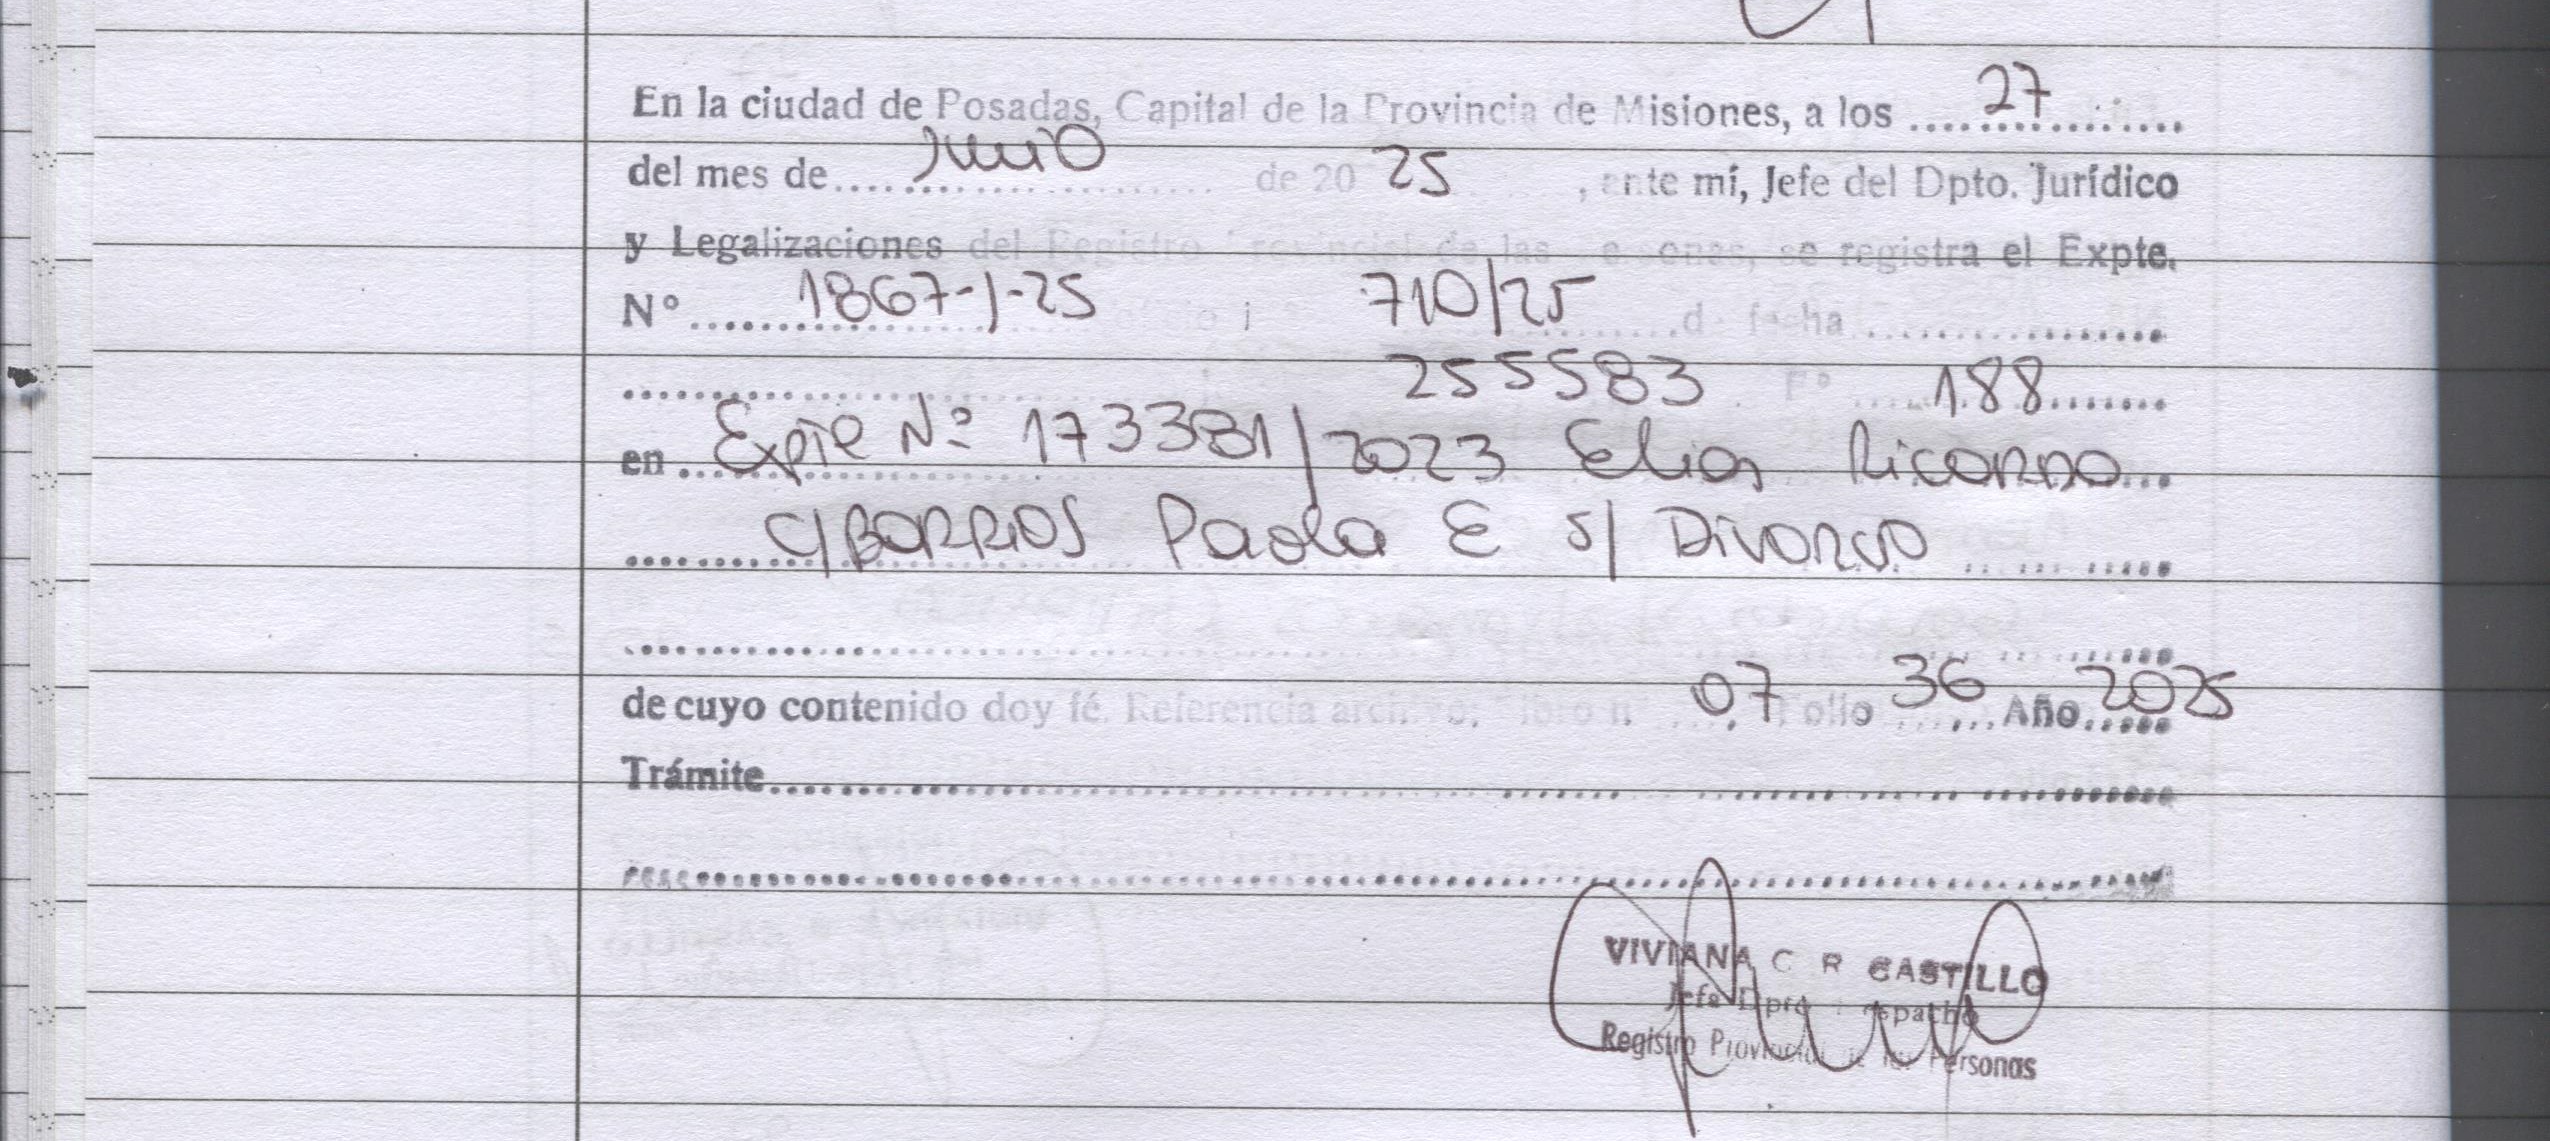 En la ciudad de Posadas, Capital de la Provincia de Misiones, a los 27
del mes de Junio de 20 25, ante mí, Jefe del Dpto. Jurídico
y Legalizaciones del Registro Provincial de las Personas, se registra el Expte.
N° 1867-J-25 710/25 de fecha
255583 F° 188
en Expte Nº 173381/2023 Elias Ricardo
C/ BARRIOS Paola E S/ Divorcio
de cuyo contenido doy fé. Referencia 07 Folio 36 Año 2025
Trámite
VIVIANA C R CASTILLO
Jefe Dpto Despacho
Registro Provincial de las Personas